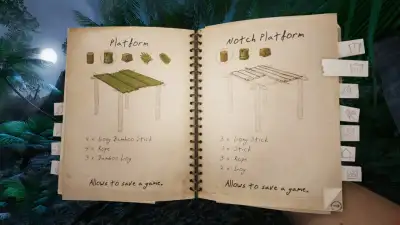 Platform
4 x Long Bamboo Stick
4 x Rope
3 x Bamboo Log
Allows to save a game.
Notch Platform
Long Stick
Stick
Rope
Log
Allows to save a game.